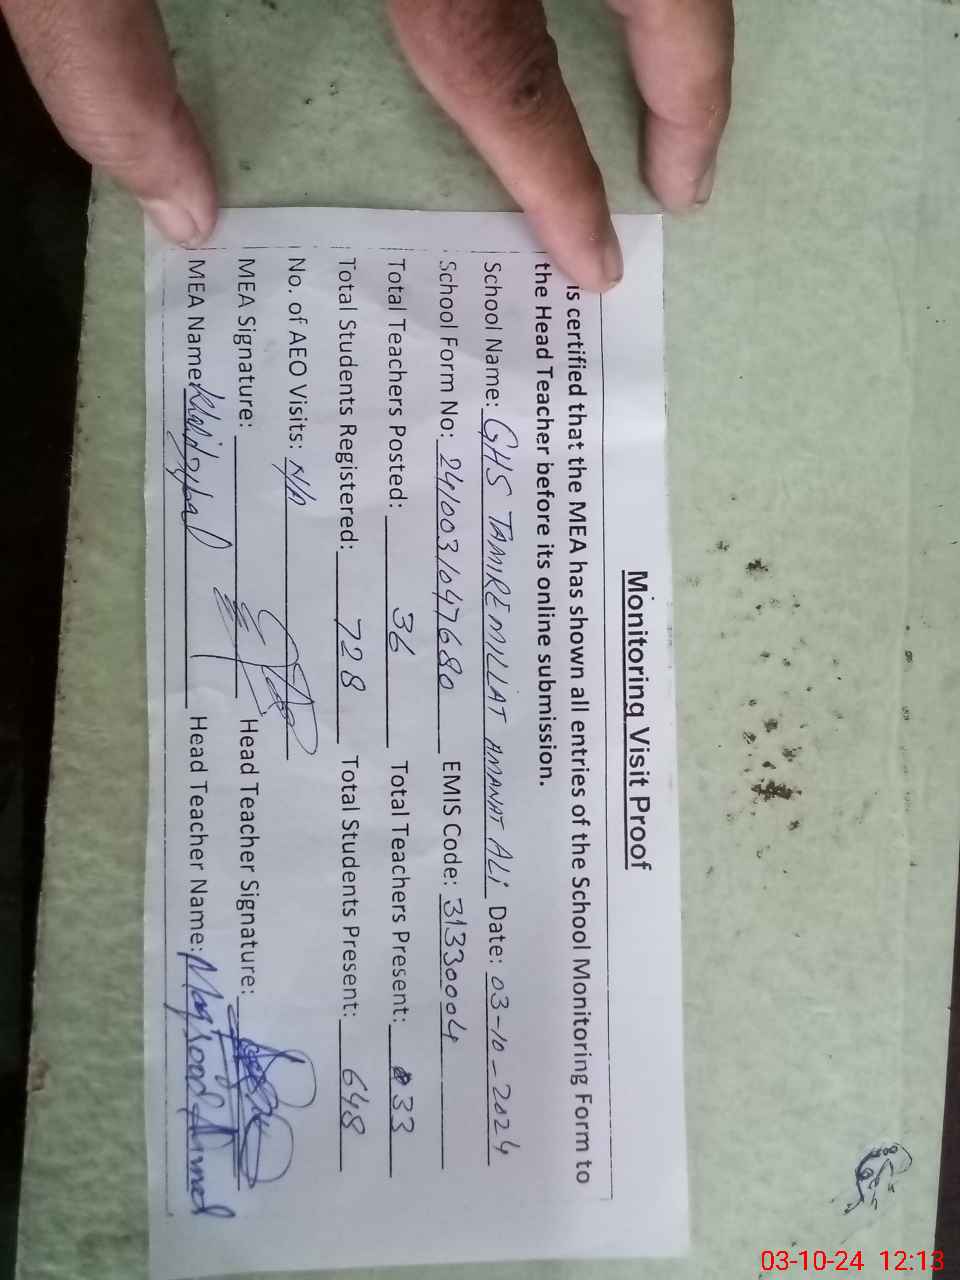 Monitoring Visit Proof
is certified that the MEA has shown all entries of the School Monitoring Form to
the Head Teacher before its online submission.
School Name: GHS TAMIRE MILLAT AMANAT ALi Date: 03-10-2024
School Form No: 2410031047680 EMIS Code: 31330004
Total Teachers Posted: 36 Total Teachers Present: 33
Total Students Registered: 728 Total Students Present: 648
No. of AEO Visits: N/A
MEA Signature: Head Teacher Signature:
MEA Name: Head Teacher Name: Maqsood Ahmed
03-10-24 12:13